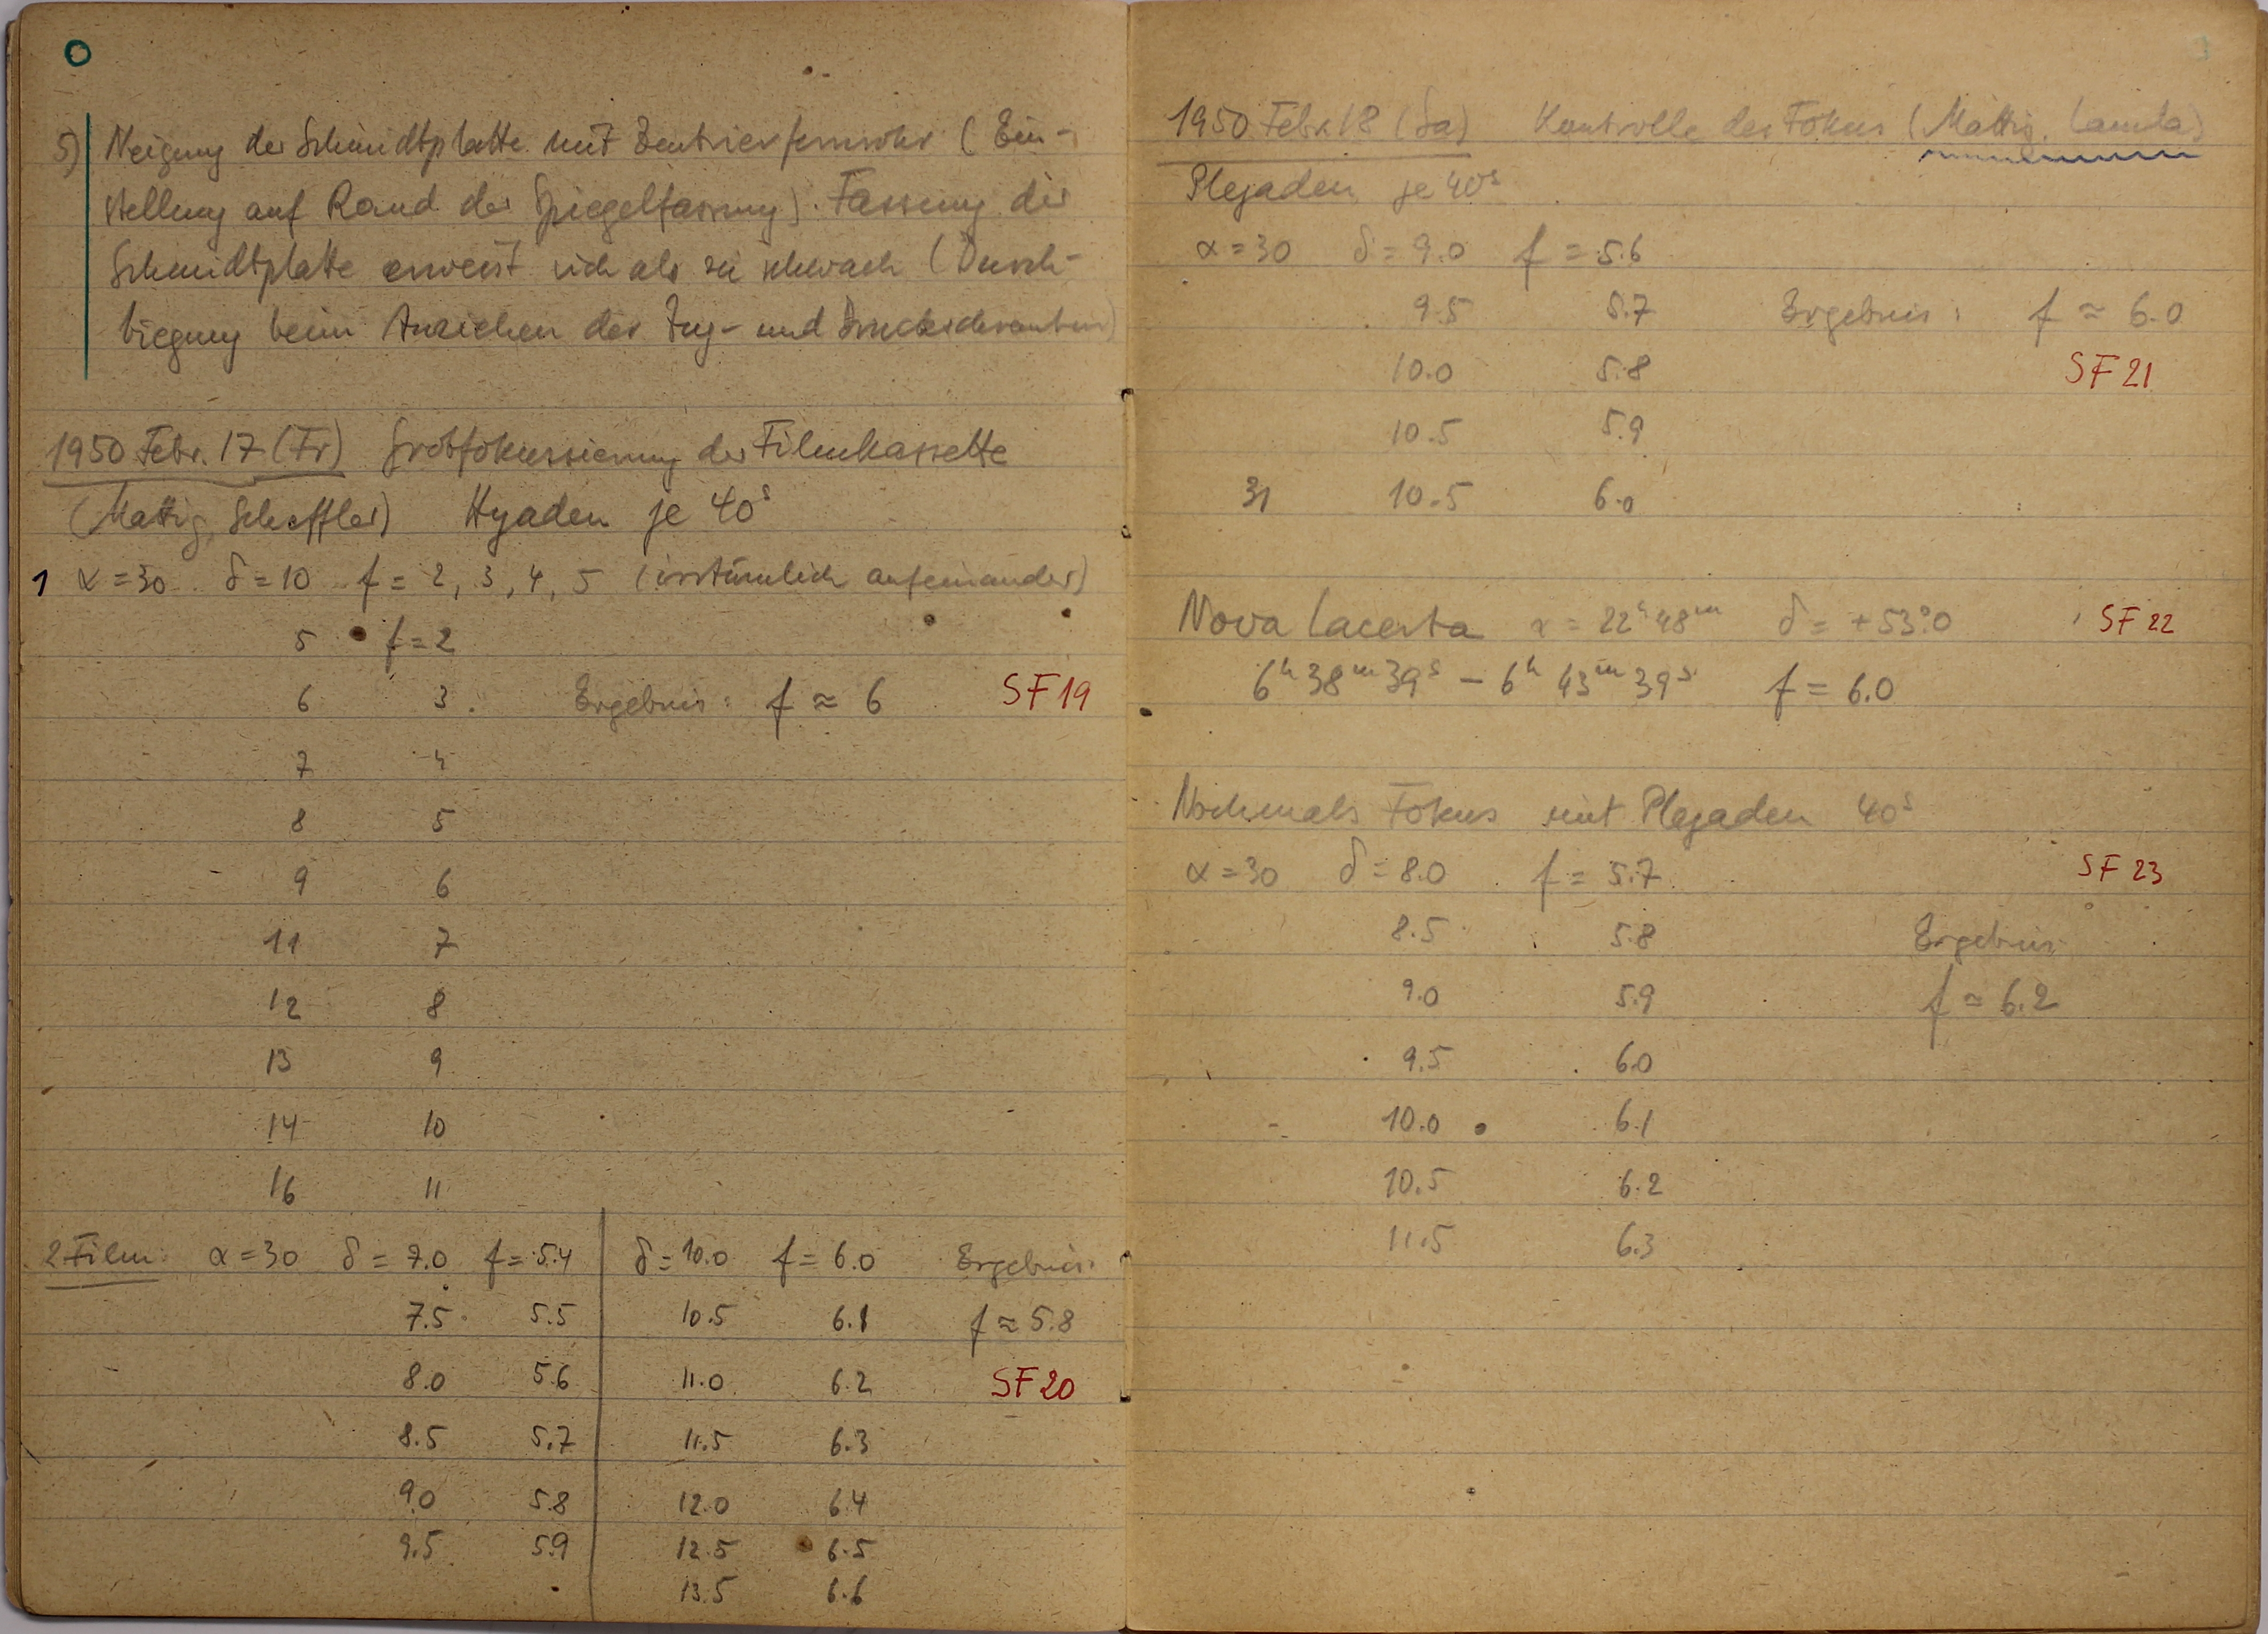 5) Neigung der Schmidtplatte mit Zentrierfernrohr (Ein-
stellung auf Rand der Spiegelfassung). Fassung der
Schmidtplatte erweist sich als zu schwach (Durch-
biegung beim Anziehen der Zug- und Druckschrauben)
1950 Febr. 17 (Fr) Grobfokussierung der Filmkassette
(Mattig, Scheffler) Hyaden je 40s
1 α = 30 δ = 10 f = 2, 3, 4, 5 (irrtümlich aufeinander)
5 f = 2
6 3 Ergebnis: f ≈ 6 SF 19
7 4
8 5
9 6
11 7
12 8
13 9
14 10
16 11
2 Film: α = 30 δ = 7.0 f = 5.4 δ = 10.0 f = 6.0 Ergebnis:
7.5 5.5 10.5 6.1 f ≈ 5.8
8.0 5.6 11.0 6.2 SF 20
8.5 5.7 11.5 6.3
9.0 5.8 12.0 6.4
9.5 5.9 12.5 6.5
13.5 6.6
1950 Febr. 18 (Sa) Kontrolle des Fokus (Mattig,
Plejaden je 40s
α = 30 δ = 9.0 f = 5.6
9.5 5.7 Ergebnis: f ≈ 6.0
10.0 5.8 SF 21
10.5 5.9
31 10.5 6.0
Nova Lacerta α = 22h 48m δ = +53°.0 SF 22
6h 38m 39s – 6h 43m 39s f = 6.0
Nochmals Fokus mit Plejaden 40s
α = 30 δ = 8.0 f = 5.7 SF 23
8.5 5.8 Ergebnis:
9.0 5.9 f ≈ 6.2
9.5 6.0
10.0 6.1
10.5 6.2
11.5 6.3